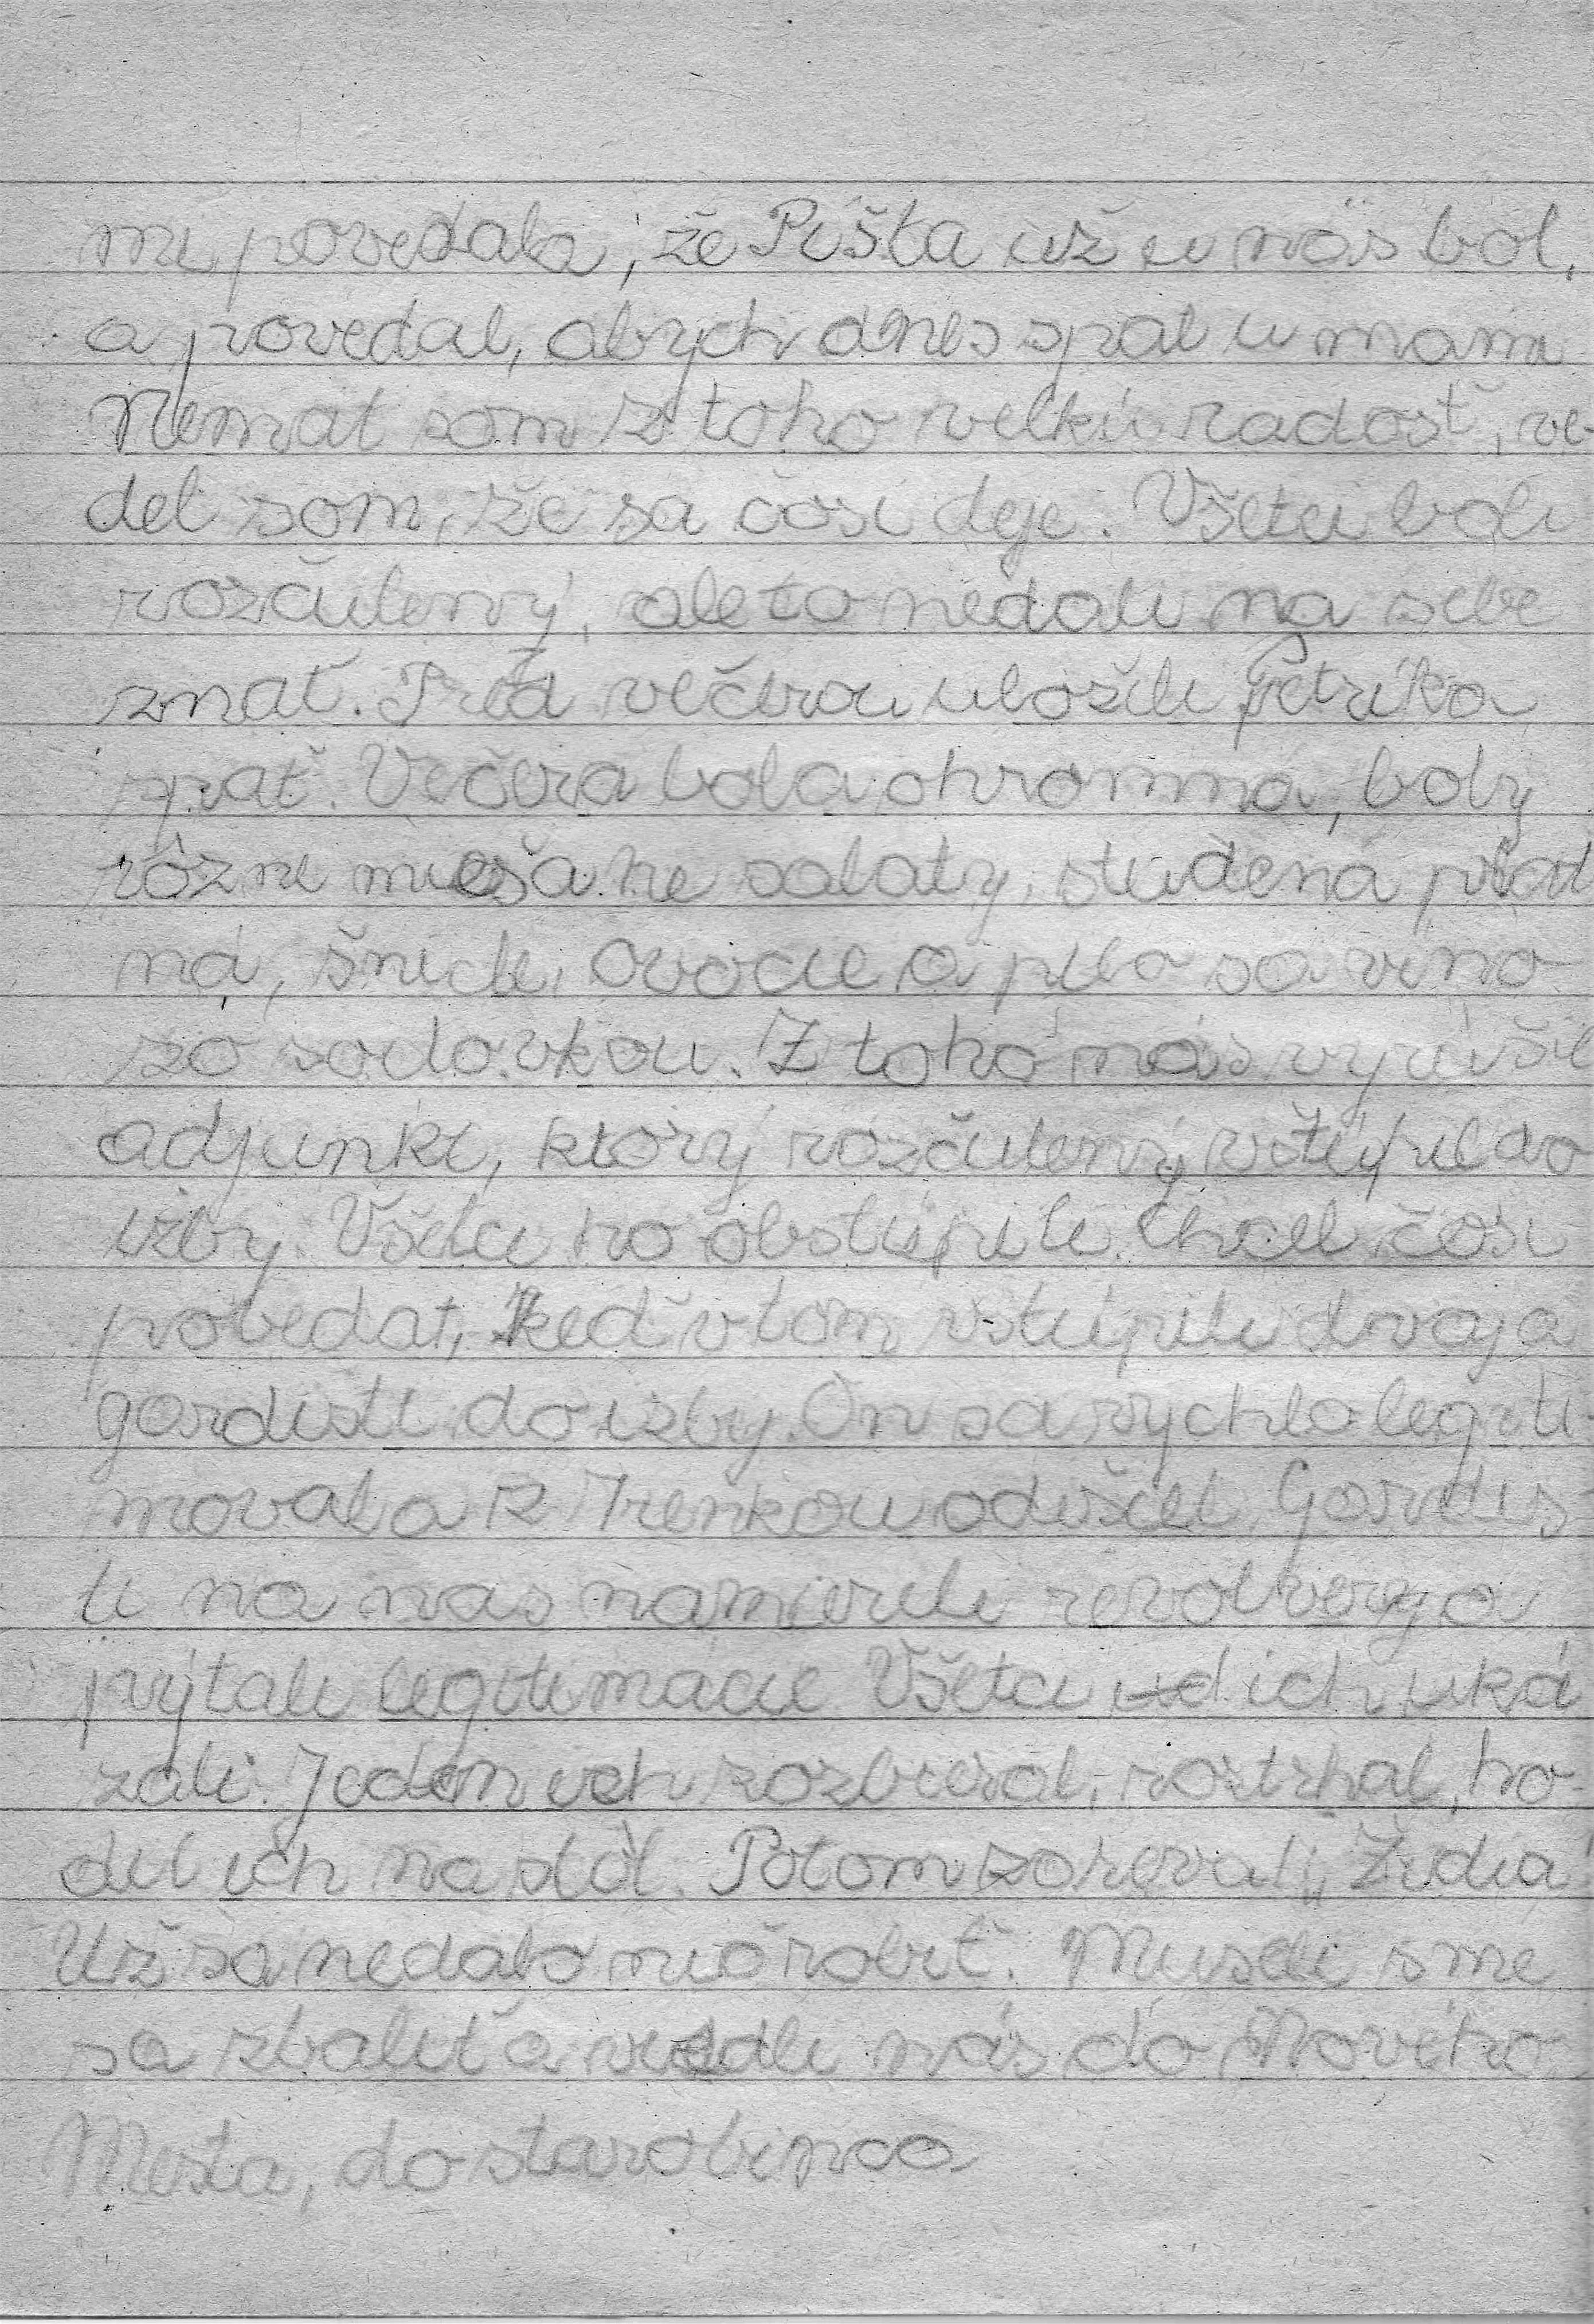 mi povedala, že Pišta už u nás bol,
a povedal, abych dnes spal u mami
Nemal som z toho velkú radosť, ve-
del som, že sa čosi deje. Všetci boli
rozčulený, ale to nedali na sebe
znať. Pred večerou uložili Petríka
spať. Večera bola ohromná, boly
rôzne miešane salaty, studená plad
ná, šnicle, ovocie a pilo sa vino
zo sodovkou. Z toho nás vyrušil
adjunkt, ktorý rozčulený vštúpil do
izby. Všetci ho obstúpili. Chcel čosi
povedat, keď v tom vstúpili dvaja
gardisti do izby. On sa rychlo legiti
moval a z Trenkou odišiel. Gardis
ti na nas namierili revolvery a
pýtali legitimácie Všetci ich uká
zali. Jeden ich rozbieral, roztrhal, ho
dil ich na stôl. Potom zareval: „Židia
Už sa nedalo nič robiť. Museli sme
sa zbaliť a viedli nás do Nového
Mesta, do starobinca